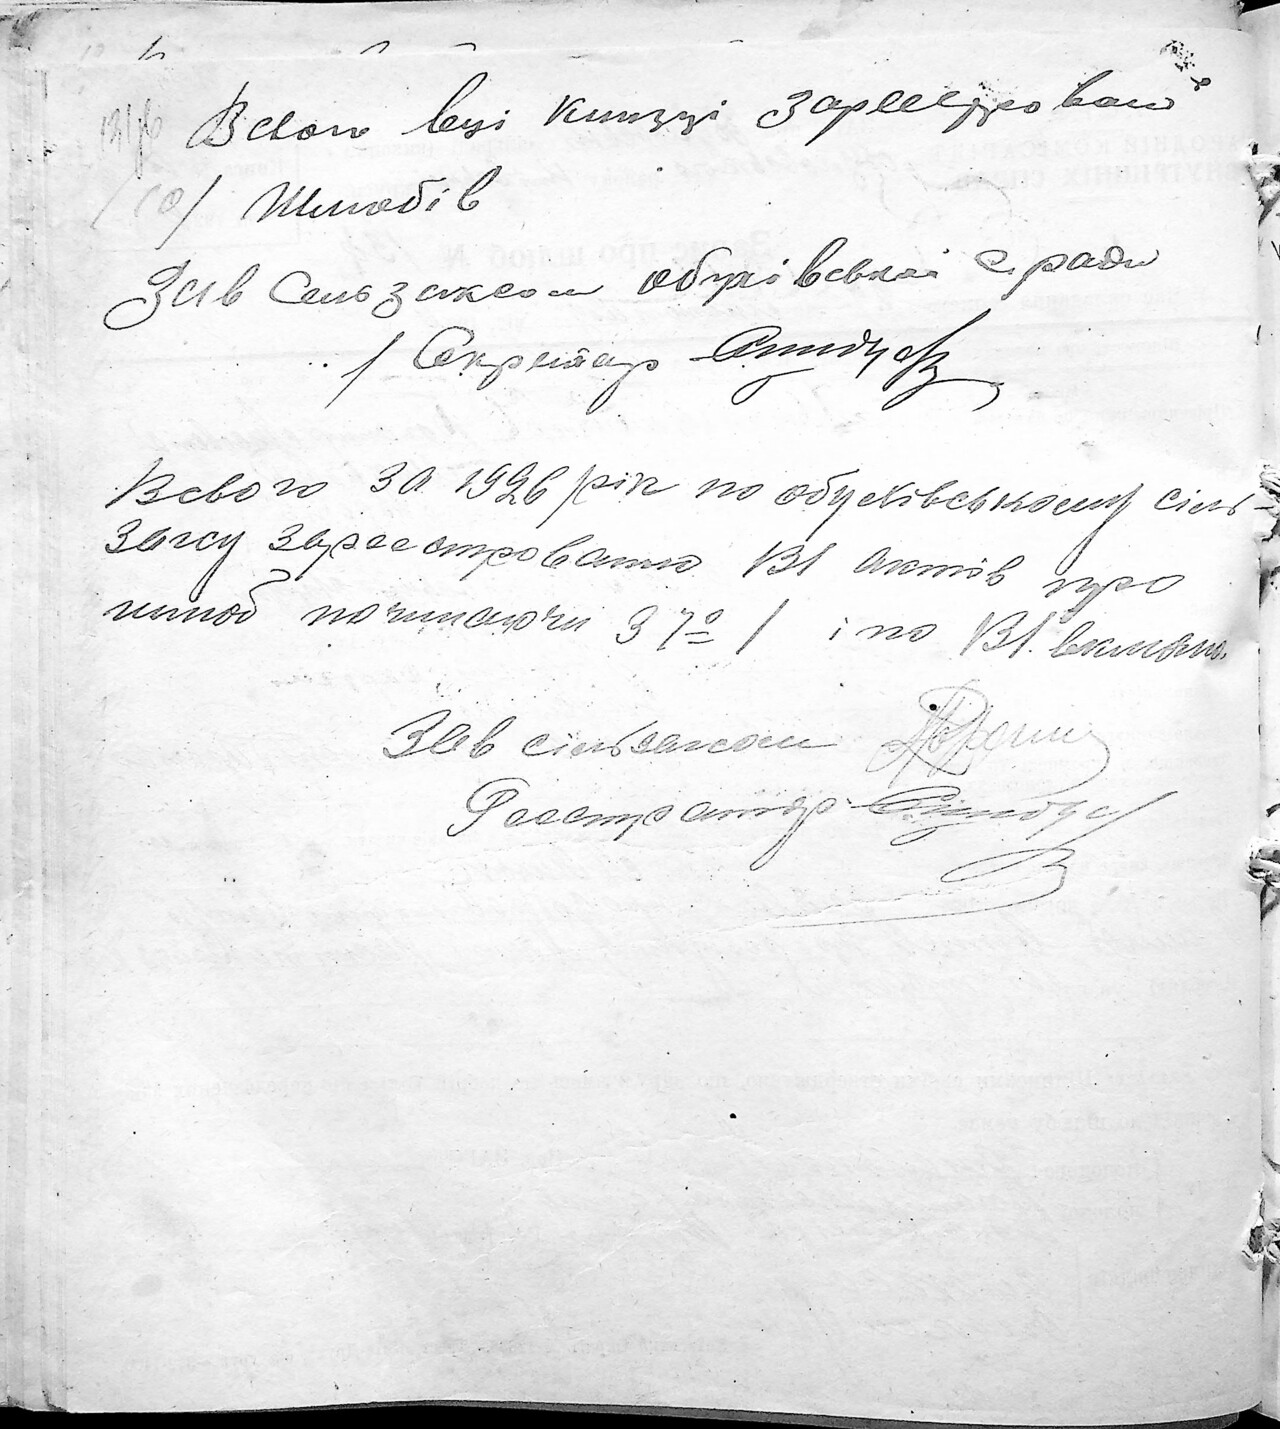 Всього в ці книзці зареєстровано
/10/ Шлюбів
Зав Сельзаксом обухівської с ради
/ Секретар
Всього за 1926 рік по обухівському сіль-
загсу зареєстровано 131 актів про
шлюб починаючи з №º 1 і по 131 включно.
Зав сільзагсом
Реєстратор